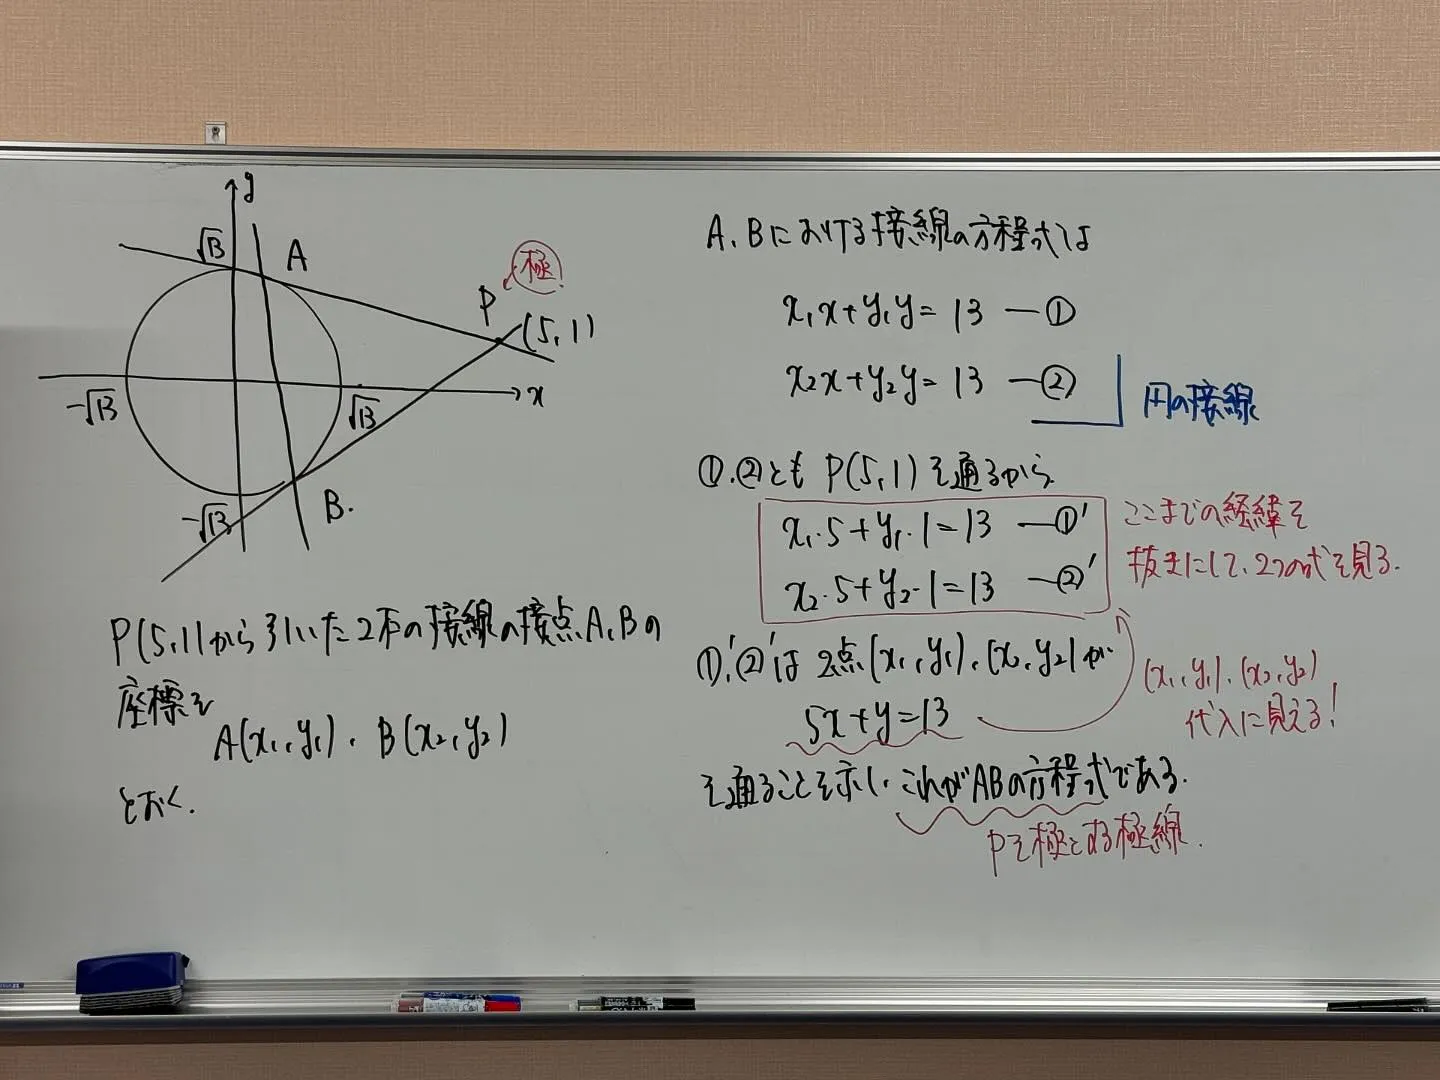 y
√13
A
極
P
(5,1)
x
-√13
√13
-√13
B.
P(5,1)から引いた2本の接線の接点A,Bの
座標を
A(x₁,y₁)、B(x₂,y₂)
とおく.
A、Bにおける接線の方程式は
x₁x+y₁y=13 ―①
x₂x+y₂y=13 ―②
円の接線
①、②とも P(5,1)を通るから
x₁・5+y₁・1=13 ―①'
x₂・5+y₂・1=13 ―②'
ここまでの経緯を
抜きにして、2つの式を見る.
①'、②'は 2点(x₁,y₁)、(x₂,y₂)が
5x+y=13
(x₁,y₁)、(x₂,y₂)
代入に見える!
を通ることを示し、これがABの方程式である.
Pを極とする極線.